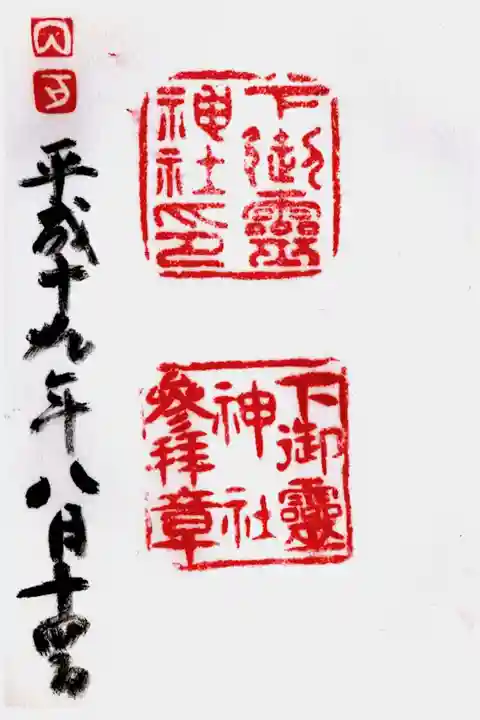 下御靈
神社印
下御靈
神社
參拝章
平成十九年八月十四日